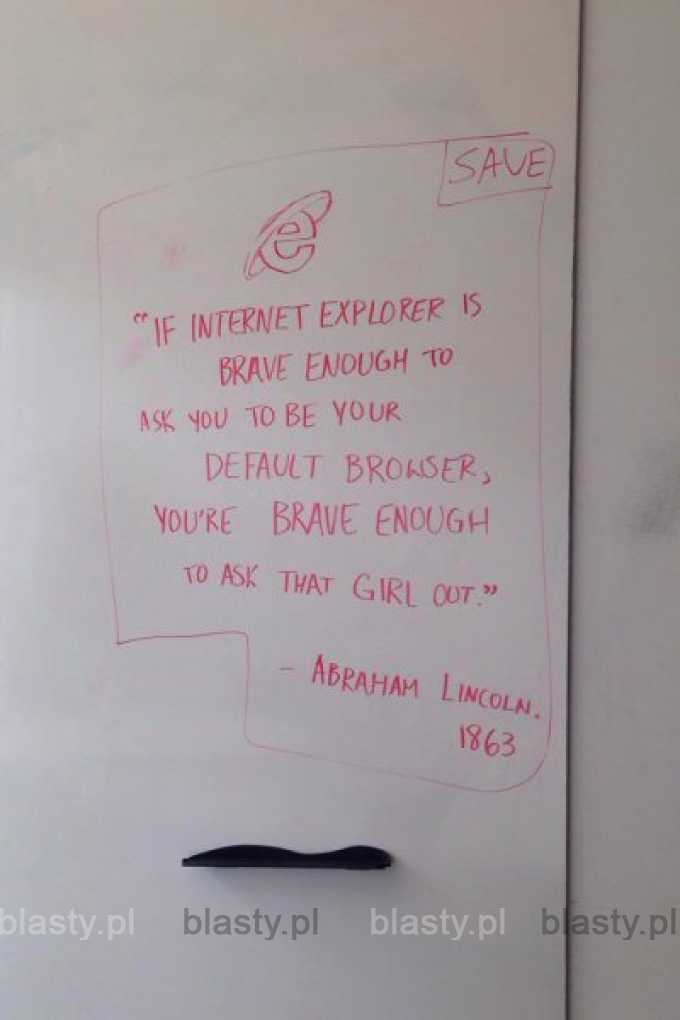 SAVE
e
"IF INTERNET EXPLORER IS
BRAVE ENOUGH TO
ASK YOU TO BE YOUR
DEFAULT BROWSER,
YOU'RE BRAVE ENOUGH
TO ASK THAT GIRL OUT."
- ABRAHAM LINCOLN.
1863
blasty.pl blasty.pl blasty.pl blasty.pl